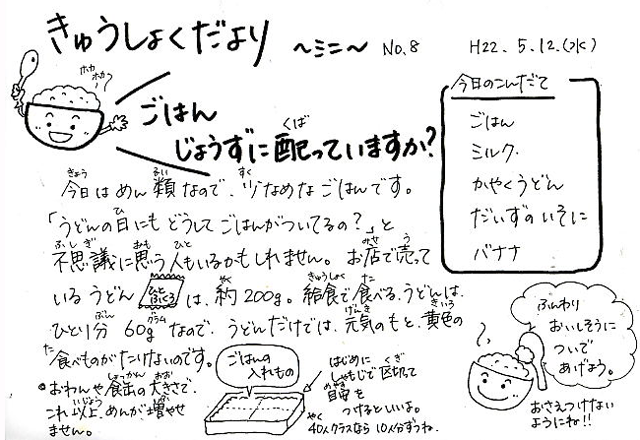 きゅうしょくだより 〜ミニ〜 No.8 H22. 5.12.(水)
ホカホカ
ごはん
じょうずに配っていますか?
くば
今日のこんだて
ごはん
ミルク
かやくうどん
だいずのいそに
バナナ
きょう るい すく
今日はめん類なので、少なめなごはんです。
ひ
「うどんの日にもどうしてごはんがついてるの?」と
ふしぎ おも ひと みせ う
不思議に思う人もいるかもしれません。お店で売って
ひとふくろ やく きゅうしょく た
いるうどんは、約200g。給食で食べる、うどんは、
ぶん グラム げんき きいろ
ひとり分 60gなので、うどんだけでは、元気のもと、黄色の
た
食べものがたりないのです。
しょっかん おお
*おわんや食缶の大きさで、
いじょう ふ
これ以上、めんが増やせ
ません。
ごはんの
入れもの
はじめに
くぎ
しゃもじで区切って
めやす
目安を
つけるといいよ。
やく
40人クラスなら10人分ずつね。
ふんわり
おいしそうに
ついで
あげよう。
おさえつけない
ようにね!!